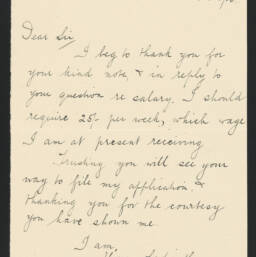 Dear Sir,
I beg to thank you for
your kind note, & in reply to
your question re salary. I should
require 25/- per week, which wage
I am at present receiving.
Trusting you will see your
way to file my application, &
thanking you for the courtesy
you have shown me.
I am,